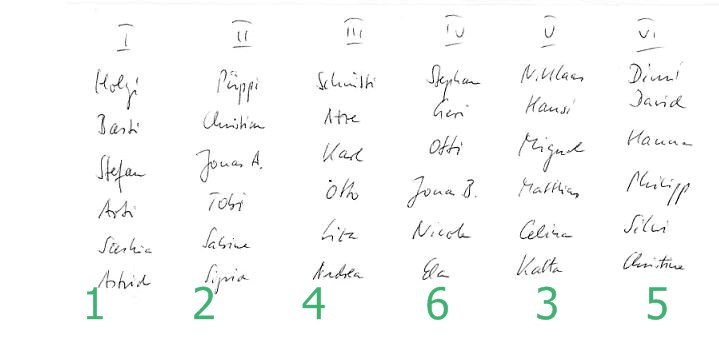 I II III IV V VI
Holgi Püppi Schmitti Stephan N.Klaas Dimi
Basti Christian Atze Geri Hansi David
Stefan Jonas A. Karl Otti Miguel Hanna
Arti Tobi Otto Jonas B. Matthias Philipp
Saskia Sabine Lita Nicole Celina Silvi
Astrid Sigrid Andrea Ela Katta Christine
1 2 4 6 3 5